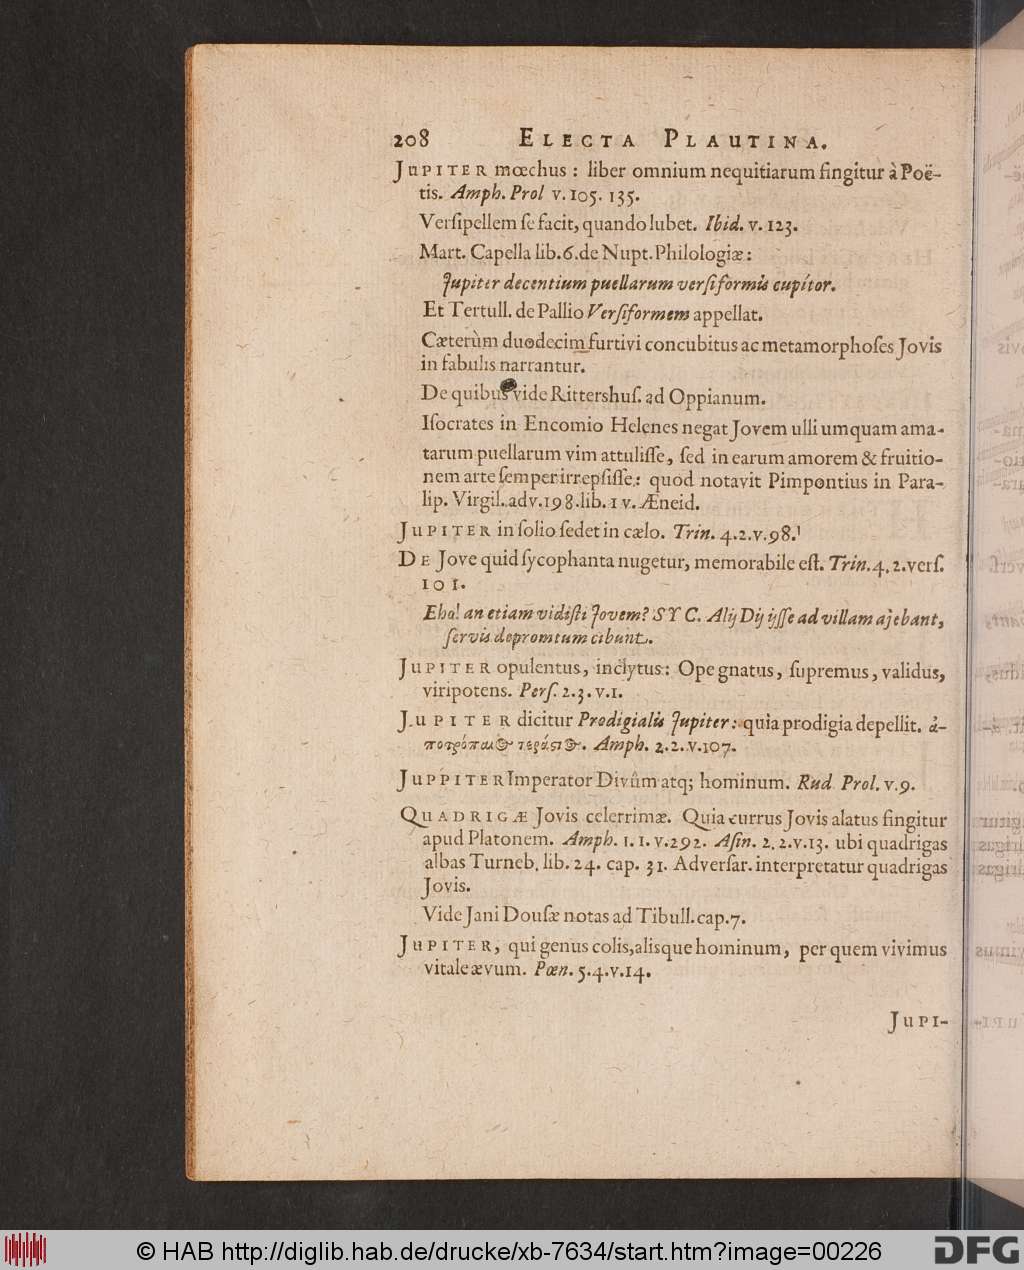 208 ELECTA PLAUTINA.
JUPITER mœchus : liber omnium nequitiarum fingitur à Poë-
tis. Amph. Prol v. 105. 135.
Verſipellem ſe facit, quando lubet. Ibid. v. 123.
Mart. Capella lib. 6. de Nupt. Philologiæ :
Jupiter decentium puellarum verſiformis cupítor.
Et Tertull. de Pallio Verſiformem appellat.
Cæterùm duodecim furtivi concubitus ac metamorphoſes Jovis
in fabulis narrantur.
De quibus vide Rittershuſ. ad Oppianum.
Iſocrates in Encomio Helenes negat Jovem ulli umquam ama-
tarum puellarum vim attuliſſe, ſed in earum amorem & fruitio-
nem arte ſemper irrepſiſſe : quod notavit Pimpontius in Para-
lip. Virgil. adv. 198. lib. IV. Æneid.
JUPITER in ſolio ſedet in cælo. Trin. 4. 2. v. 98.
DE Jove quid ſycophanta nugetur, memorabile eſt. Trin. 4. 2. verſ.
101.
Eho! an etiam vidiſti Jovem? SYC. Alij Dij ijſſe ad villam ajebant,
ſervis depromtum cibum.
JUPITER opulentus, inclytus : Ope gnatus, ſupremus, validus,
viripotens. Perſ. 2. 3. v. 1.
JUPITER dicitur Prodigialis Jupiter : quia prodigia depellit. ἀ-
ποτρόπαιος τεράστιος. Amph. 2. 2. v. 107.
JUPPITER Imperator Divûm atq; hominum. Rud. Prol. v. 9.
QUADRIGÆ Jovis celerrimæ. Quia currus Jovis alatus fingitur
apud Platonem. Amph. 1. 1. v. 292. Aſin. 2. 2. v. 13. ubi quadrigas
albas Turneb. lib. 24. cap. 31. Adverſar. interpretatur quadrigas
Jovis.
Vide Jani Douſæ notas ad Tibull. cap. 7.
JUPITER, qui genus colis, alisque hominum, per quem vivimus
vitale ævum. Pœn. 5. 4. v. 14.
JUPI-
© HAB http://diglib.hab.de/drucke/xb-7634/start.htm?image=00226
DFG